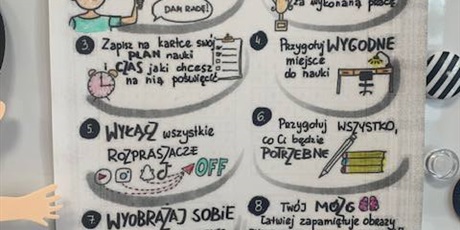 DAM RADĘ!
za wykonaną pracę
3 Zapisz na kartce swój
PLAN nauki
i CZAS jaki chcesz
na nią poświęcić
4 Przygotuj WYGODNE
miejsce
do nauki
5. WYŁĄCZ wszystkie
ROZPRASZACZE
OFF
6 Przygotuj WSZYSTKO,
co Ci będzie
POTRZEBNE
7 WYOBRAŻAJ SOBIE
8 TWÓJ MÓZG
Łatwiej zapamiętuje obrazy